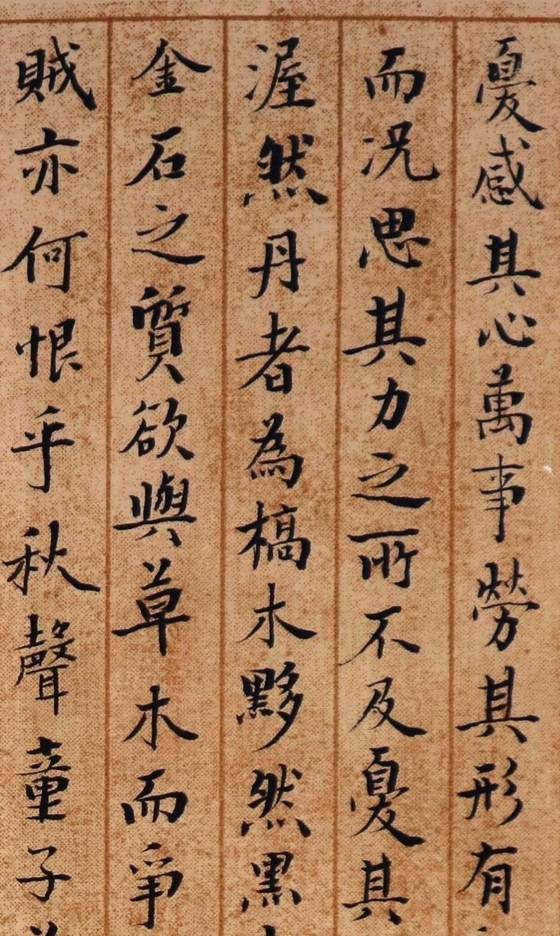 憂感其心萬事勞其形有
而况思其力之所不及憂其
渥然丹者為槁木黟然黑
金石之質欲與草木而爭
賊亦何恨乎秋聲童子